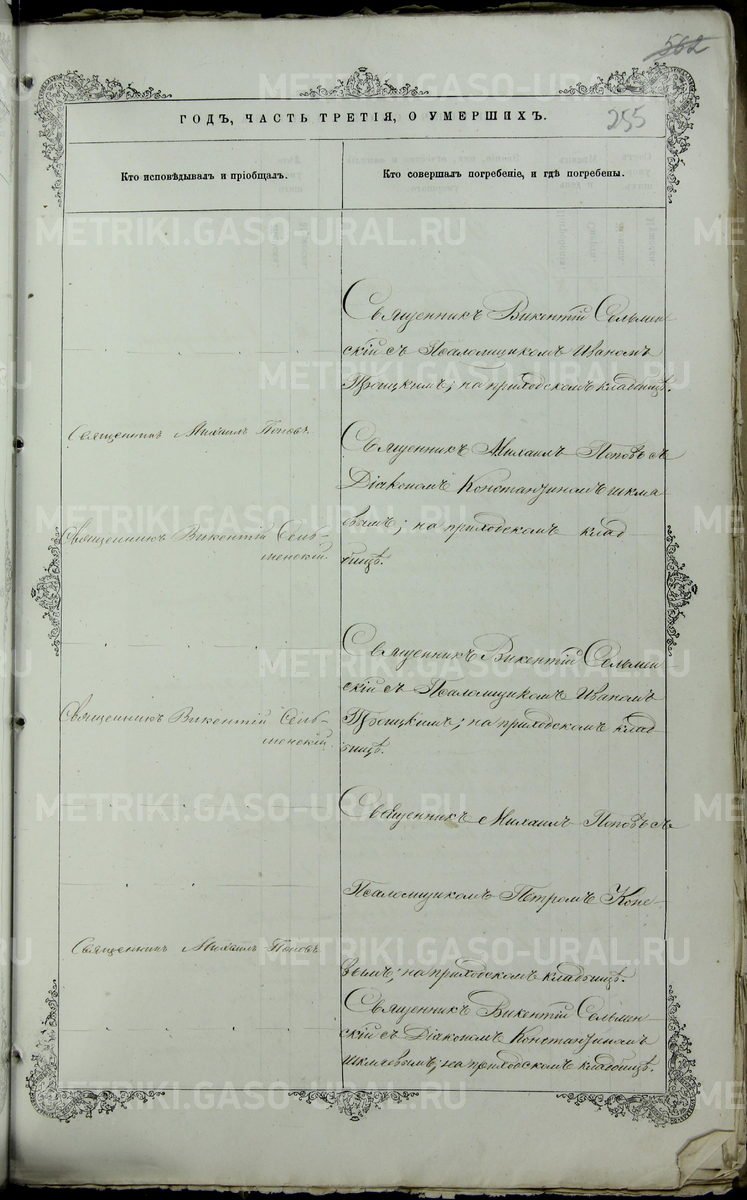 562
255
ГОДЪ, ЧАСТЬ ТРЕТІЯ, О УМЕРШИХЪ.
Кто исповѣдывалъ и пріобщалъ.
Кто совершалъ погребеніе, и гдѣ погребены.
Священникъ Викентій Сельмен
скій съ Псаломщикомъ Иваномъ
Троицкимъ; на приходскомъ кладбищѣ.
Священникъ Михаилъ Поповъ.
Священникъ Михаилъ Поповъ съ
Діакономъ Константиномъ
вымъ; на приходскомъ клад
бищѣ.
Священникъ Викентій Сель-
менскій.
Священникъ Викентій Сельмен
скій съ Псаломщикомъ Иваномъ
Троицкимъ; на приходскомъ клад
бищѣ.
Священникъ Викентій Сель-
менскій.
Священникъ Михаилъ Поповъ съ
Псаломщикомъ Петромъ
вымъ; на приходскомъ кладбищѣ.
Священникъ Михаилъ Поповъ
Священникъ Викентій Сельмен
скій съ Діакономъ Константиномъ
на приходскомъ кладбищѣ.
METRIKI.GASO-URAL.RU